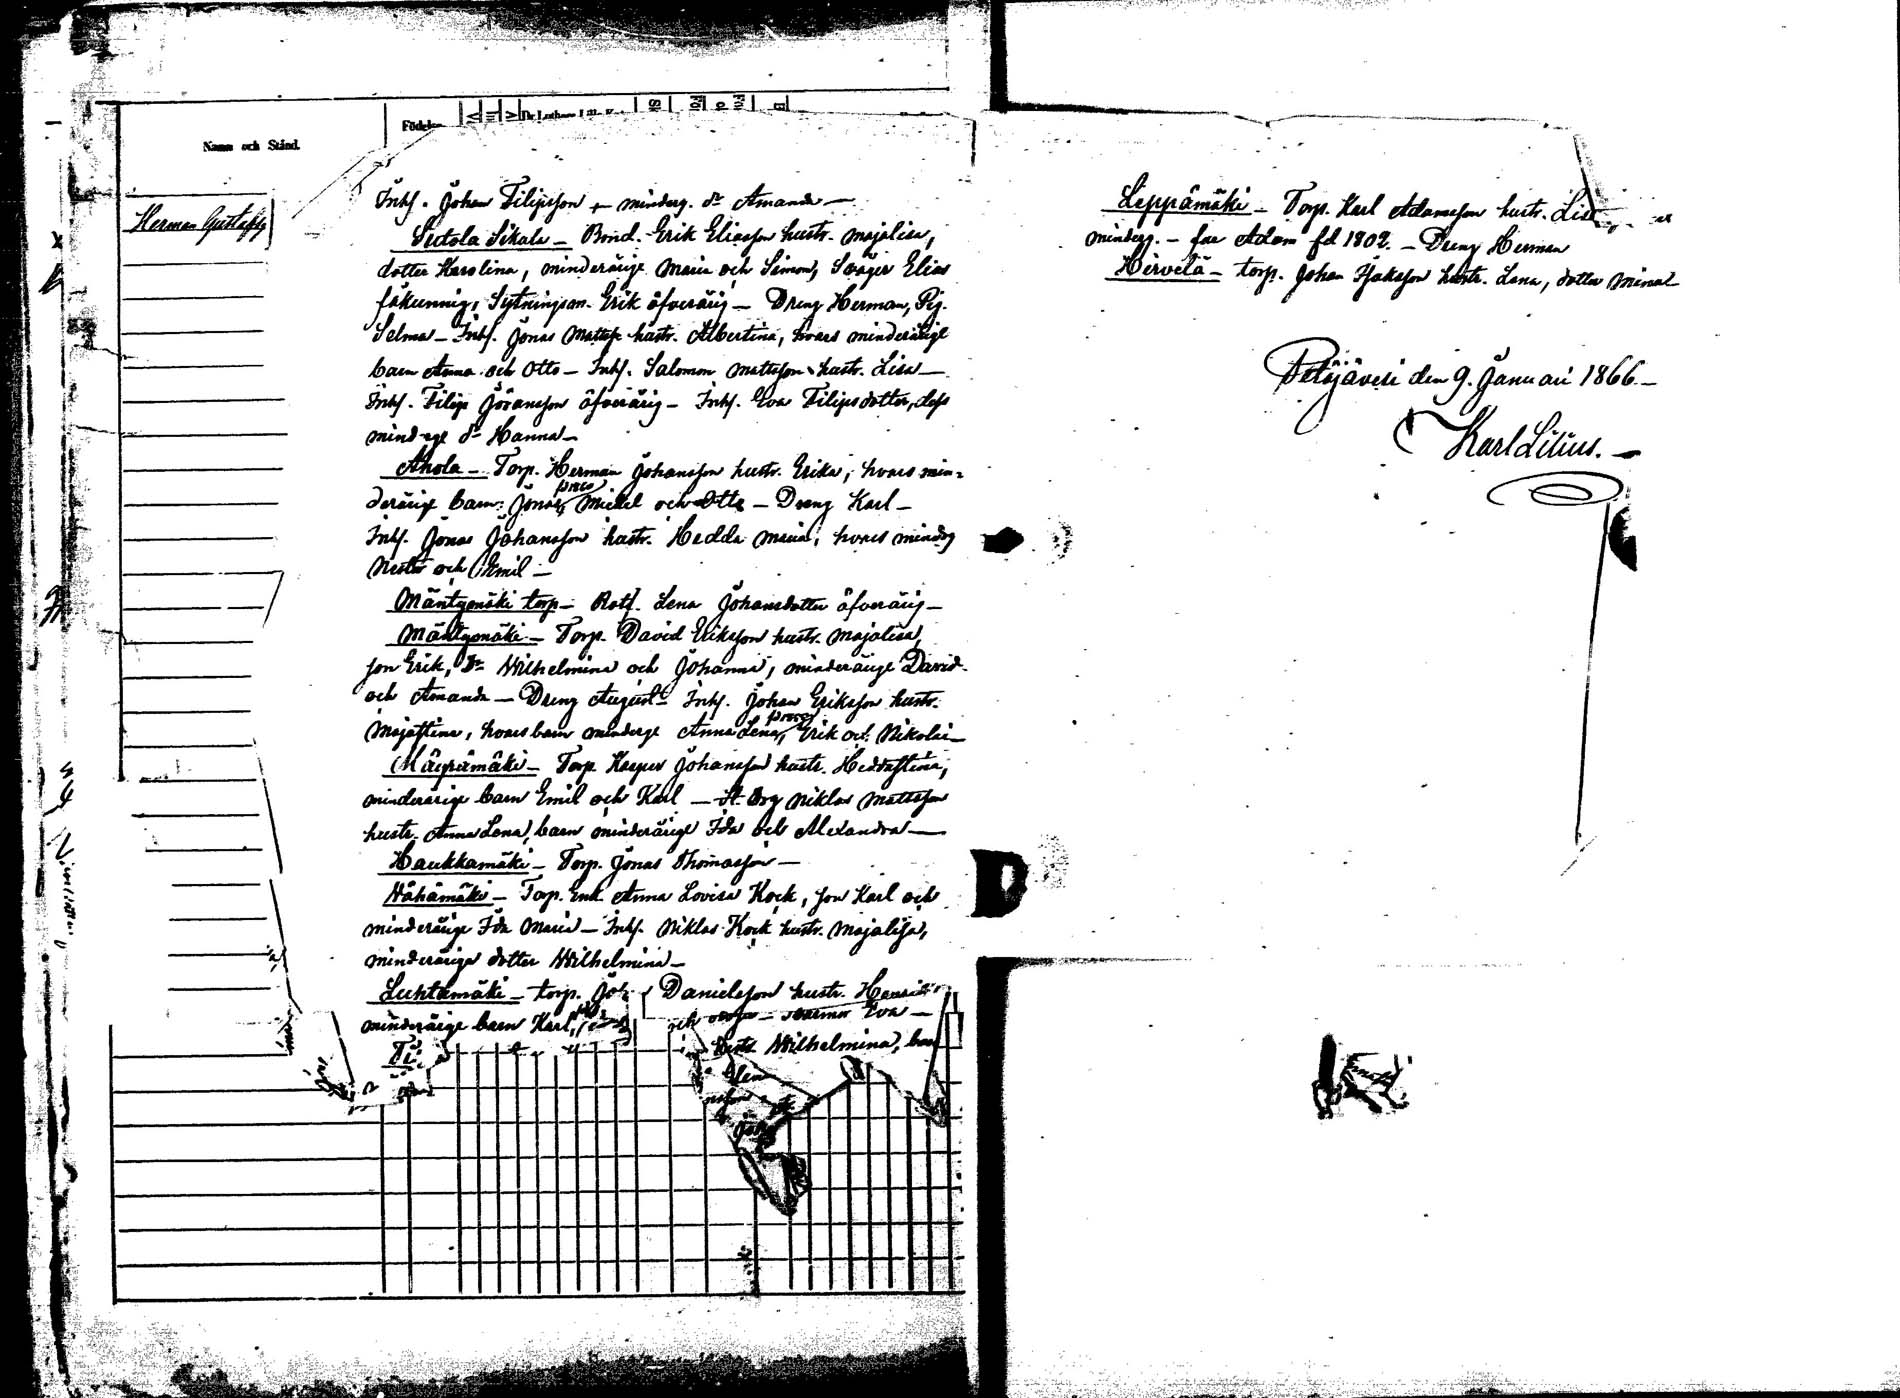 Namn och Stånd.
Födelse
Herman Gustafss
Inhs. Johan Filipsson + minderg. dr Amanda —
Sutola Sikala — Bond. Erik Eliasson hustr. Majalisa,
dotter Karolina, minderårige Maria och Simon, Svåger Elias
fåkunnig, Sytningsm. Erik öfverårig — Dreng Herman, Pig.
Selma — Inhs. Jonas Mattss. hustr. Albertina, hvars minderårige
barn Anna och Otto — Inhs. Salomon Mattsson hustr. Lisa —
Inhs. Filip Göransson öfverårig — Inhs. Eva Filipsdotter, dess
mind-ge dr Hanna —
Ahola — Torp. Herman Johansson hustr. Erika, hvars min-
derårige barn: Jonas, Mickel och Otto — Dreng Karl —
Inhs. Jonas Johansson hustr. Hedda Maria, hvars minderg
Nestor och Emil —
Mäntymäki torp — Roth. Lena Johansdotter öfverårig —
Mäntymäki — Torp. David Eriksson hustr. Majalisa,
son Erik, Dr Wilhelmina och Johanna, minderårige David
och Amanda — Dreng August — Inhs. Johan Eriksson hustr.
Majastina, hvars barn minderge Anna Lena, Erik och Nikolai —
Mäyrämäki — Torp. Kasper Johansson hustr. Heddastina,
minderårige barn Emil och Karl — Niklas Mattsson
hustr. Anna Lena, barn minderårige Ida och Alexandra —
Haukkamäki — Torp. Jonas Thomasson —
Wähämäki — Torp. Enk. Anna Lovisa Kock, son Karl och
minderårige Ida Maria — Inhs. Niklas Kock hustr. Majalisa,
minderåriga dotter Wilhelmina —
Luhtamäki — torp. Joh Danielsson hustr.
minderårige barn Karl, och Eva —
Wilhelmina, bar
Leppämäki — Torp. Karl Adamsson hustr. Lis
minderg. — far Adam fd 1802. — Dreng Herman
Hirvelä — torp. Johan Isaksson hustr. Lena, dotter Minal
Petäjävesi den 9. Januari 1866 —
Karl Lilius. —